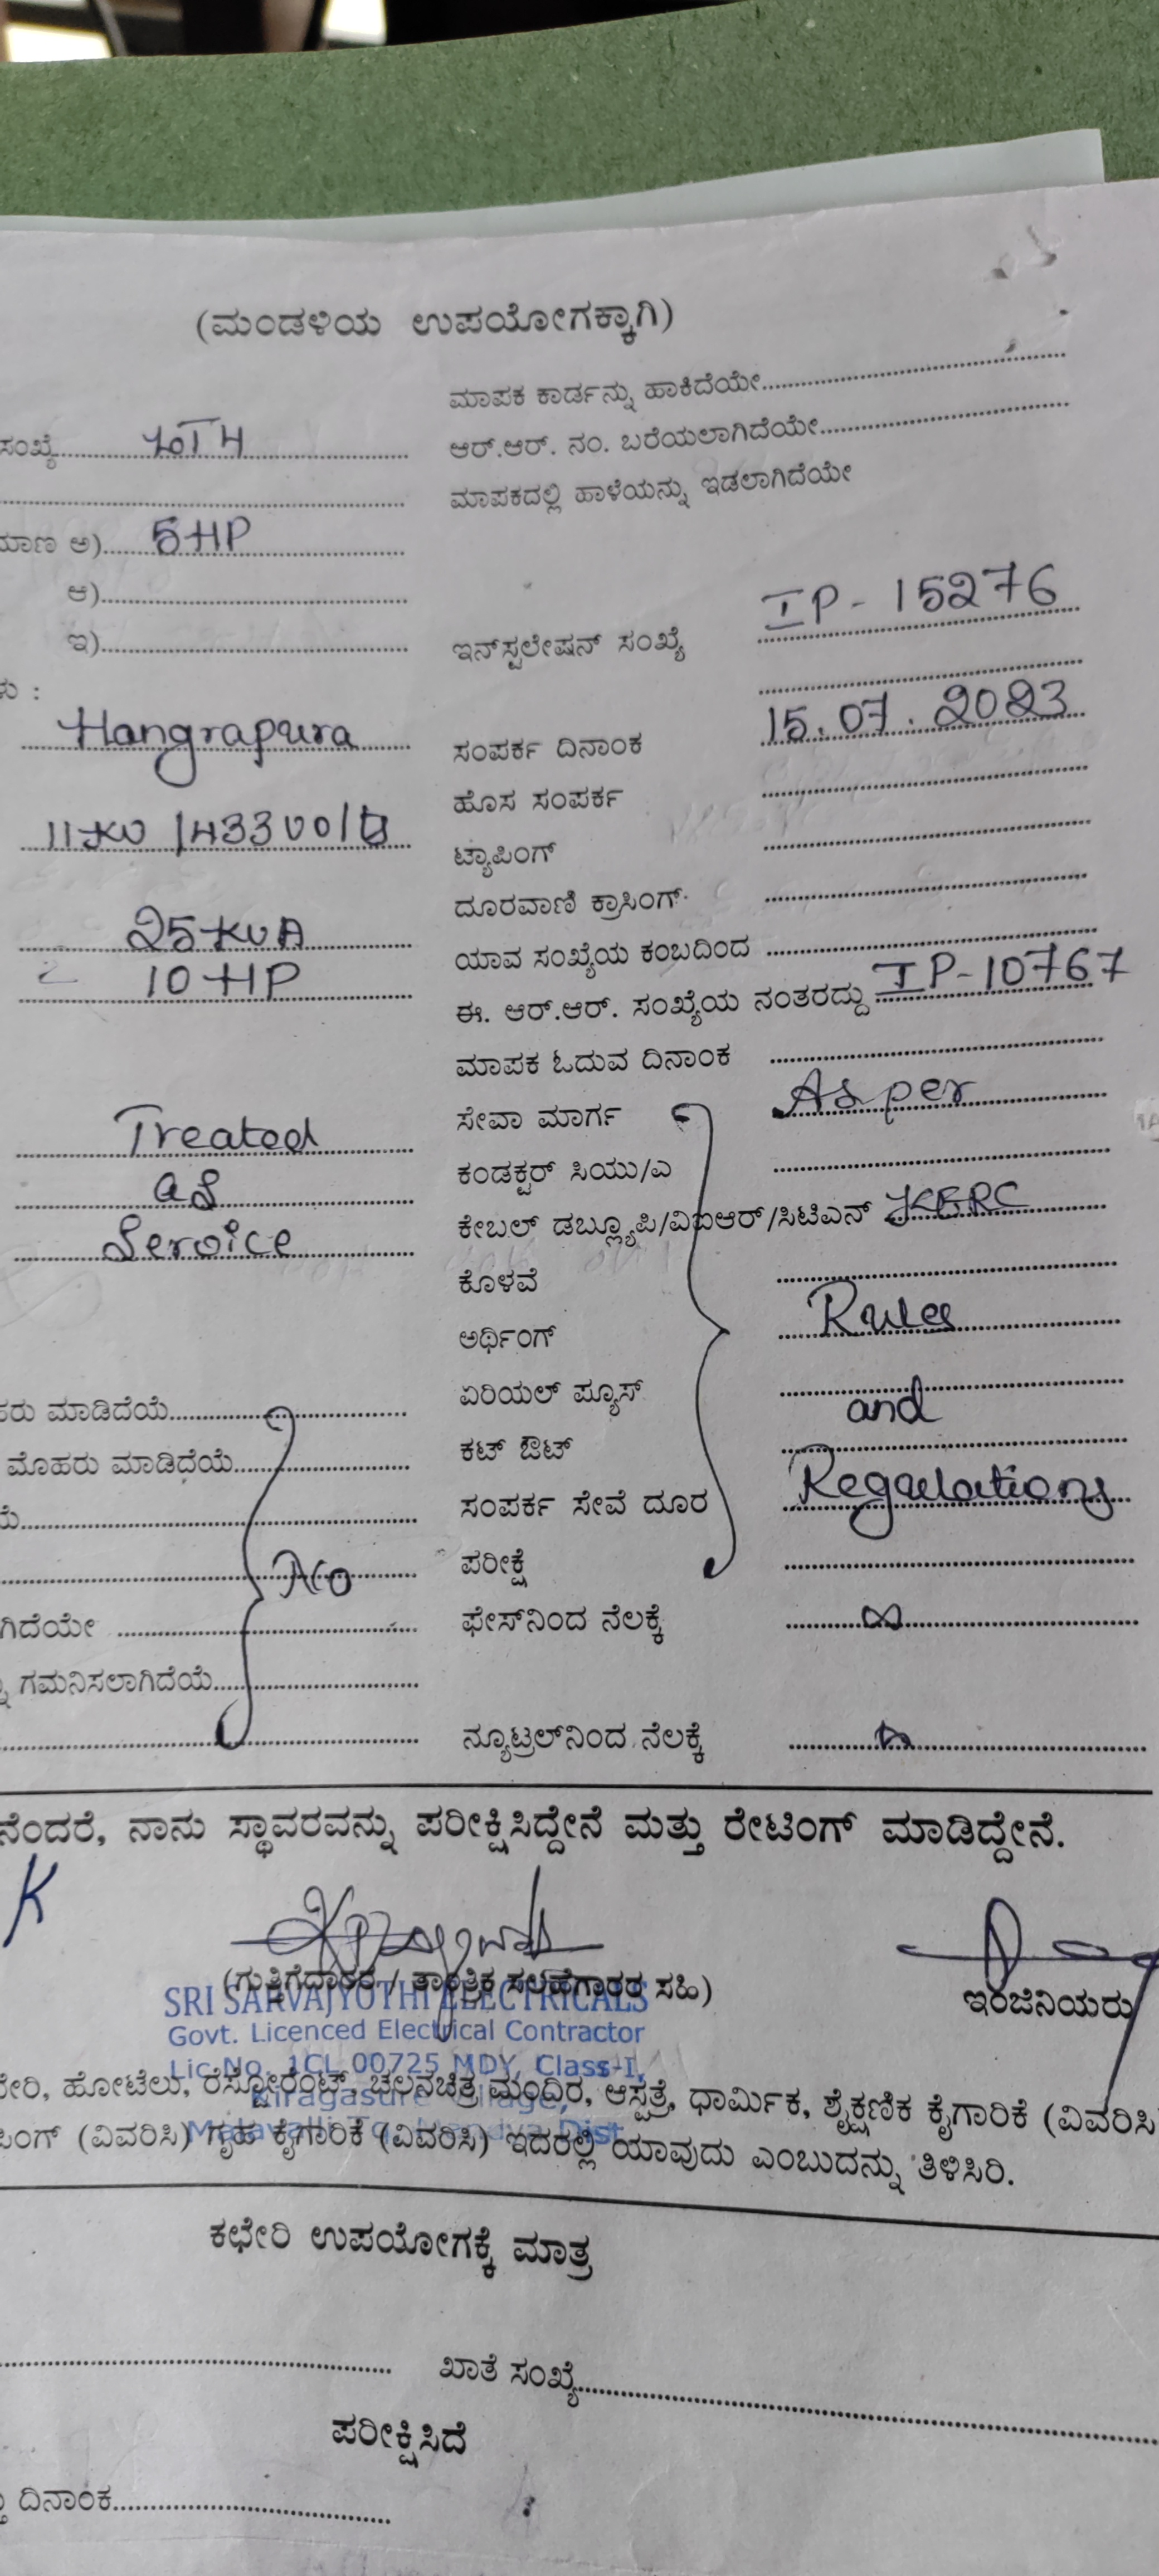 (ಮಂಡಳಿಯ ಉಪಯೋಗಕ್ಕಾಗಿ)
ಮಾಪಕ ಕಾರ್ಡನ್ನು ಹಾಕಿದೆಯೇ
ಸಂಖ್ಯೆ
ಆರ್.ಆರ್. ನಂ. ಬರೆಯಲಾಗಿದೆಯೇ
ಮಾಪಕದಲ್ಲಿ ಹಾಳೆಯನ್ನು ಇಡಲಾಗಿದೆಯೇ
ಅ) 5HP
ಆ)
ಇ)
ಇನ್‌ಸ್ಟಲೇಷನ್ ಸಂಖ್ಯೆ IP-15276
Hangrapura
ಸಂಪರ್ಕ ದಿನಾಂಕ 15.07.2023
ಹೊಸ ಸಂಪರ್ಕ
ಟ್ಯಾಪಿಂಗ್
ದೂರವಾಣಿ ಕ್ರಾಸಿಂಗ್
25KVA
ಯಾವ ಸಂಖ್ಯೆಯ ಕಂಬದಿಂದ
10HP
ಈ. ಆರ್.ಆರ್. ಸಂಖ್ಯೆಯ ನಂತರದ್ದು IP-10767
ಮಾಪಕ ಓದುವ ದಿನಾಂಕ
Treated
ಸೇವಾ ಮಾರ್ಗ As per
as
ಕಂಡಕ್ಟರ್ ಸಿಯು/ಎ
Service
ಕೇಬಲ್ ಡಬ್ಲ್ಯೂಪಿ/ವಿಐಆರ್/ಸಿಟಿಎನ್ KERC
ಕೊಳವೆ
ಅರ್ಥಿಂಗ್ Rules
ಮಾಡಿದೆಯೆ
ಏರಿಯಲ್ ಫ್ಯೂಸ್ and
ಮೊಹರು ಮಾಡಿದೆಯೆ
ಕಟ್ ಔಟ್
ಸಂಪರ್ಕ ಸೇವೆ ದೂರ Regulations
No
ಪರೀಕ್ಷೆ
ಫೇಸ್‌ನಿಂದ ನೆಲಕ್ಕೆ ∞
ಗಮನಿಸಲಾಗಿದೆಯೆ
ನ್ಯೂಟ್ರಲ್‌ನಿಂದ ನೆಲಕ್ಕೆ
ನಾನು ಸ್ಥಾವರವನ್ನು ಪರೀಕ್ಷಿಸಿದ್ದೇನೆ ಮತ್ತು ರೇಟಿಂಗ್ ಮಾಡಿದ್ದೇನೆ.
(ಗುತ್ತಿಗೆದಾರರ / ತಾಂತ್ರಿಕ ಸಲಹೆಗಾರರ ಸಹಿ)
ಇಂಜಿನಿಯರು
SRI SARVAJYOTHI ELECTRICALS
Govt. Licenced Electrical Contractor
Lic.No. 1CL 00725 MDY, Class-I,
Kiragasur Village,
ಹೋಟೆಲು, ರೆಸ್ಟೋರೆಂಟ್, ಚಲನಚಿತ್ರ ಮಂದಿರ, ಆಸ್ಪತ್ರೆ, ಧಾರ್ಮಿಕ, ಶೈಕ್ಷಣಿಕ ಕೈಗಾರಿಕೆ (ವಿವರಿಸಿ
(ವಿವರಿಸಿ) ಗೃಹ ಕೈಗಾರಿಕೆ (ವಿವರಿಸಿ) ಇದರಲ್ಲಿ ಯಾವುದು ಎಂಬುದನ್ನು ತಿಳಿಸಿರಿ.
ಕಛೇರಿ ಉಪಯೋಗಕ್ಕೆ ಮಾತ್ರ
ಖಾತೆ ಸಂಖ್ಯೆ
ಪರೀಕ್ಷಿಸಿದೆ
ದಿನಾಂಕ